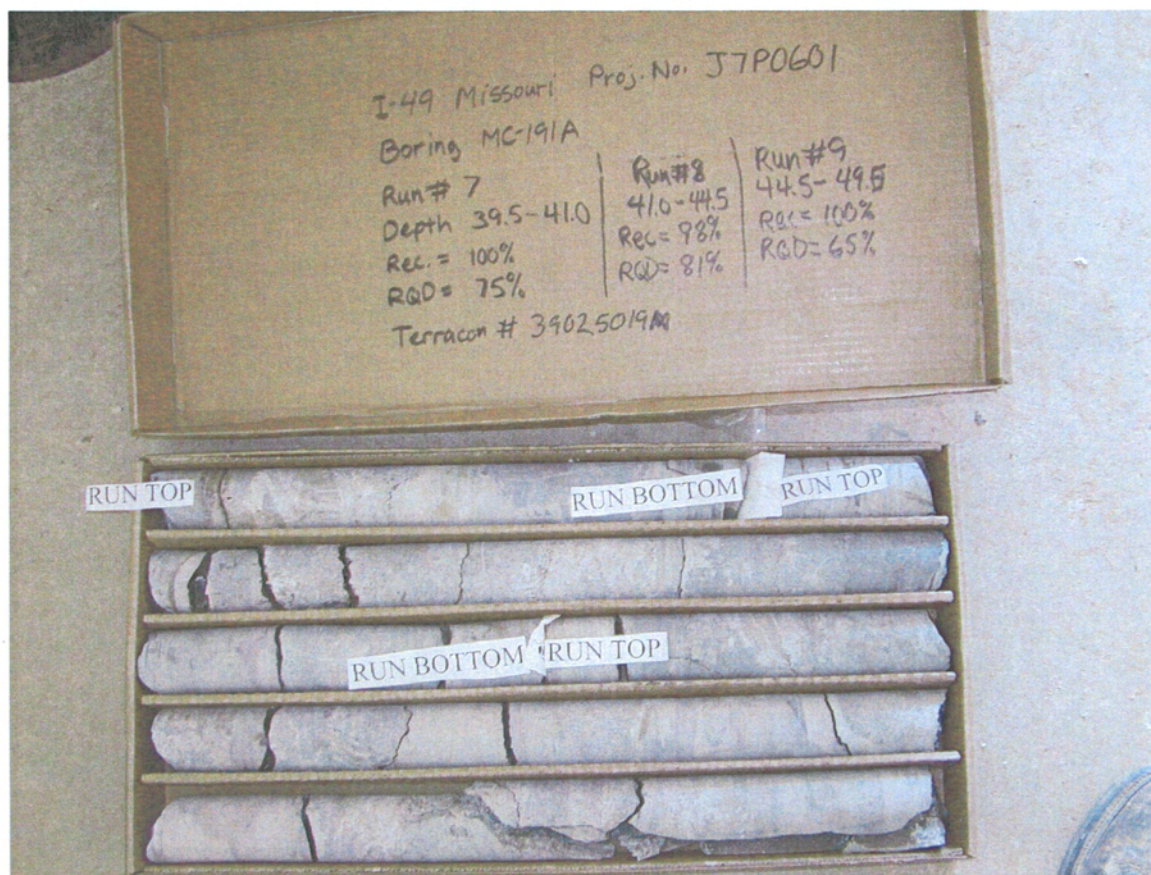 I-49 Missouri Proj. No. J7P0601
Boring MC-191A
Run # 7
Depth 39.5-41.0
Rec. = 100%
RQD = 75%
Run#8
41.0-44.5
Rec= 98%
RQD= 81%
Run#9
44.5-49.5
Rec= 100%
RQD= 65%
Terracon # 39025019M
RUN TOP
RUN BOTTOM
RUN TOP
RUN BOTTOM
RUN TOP